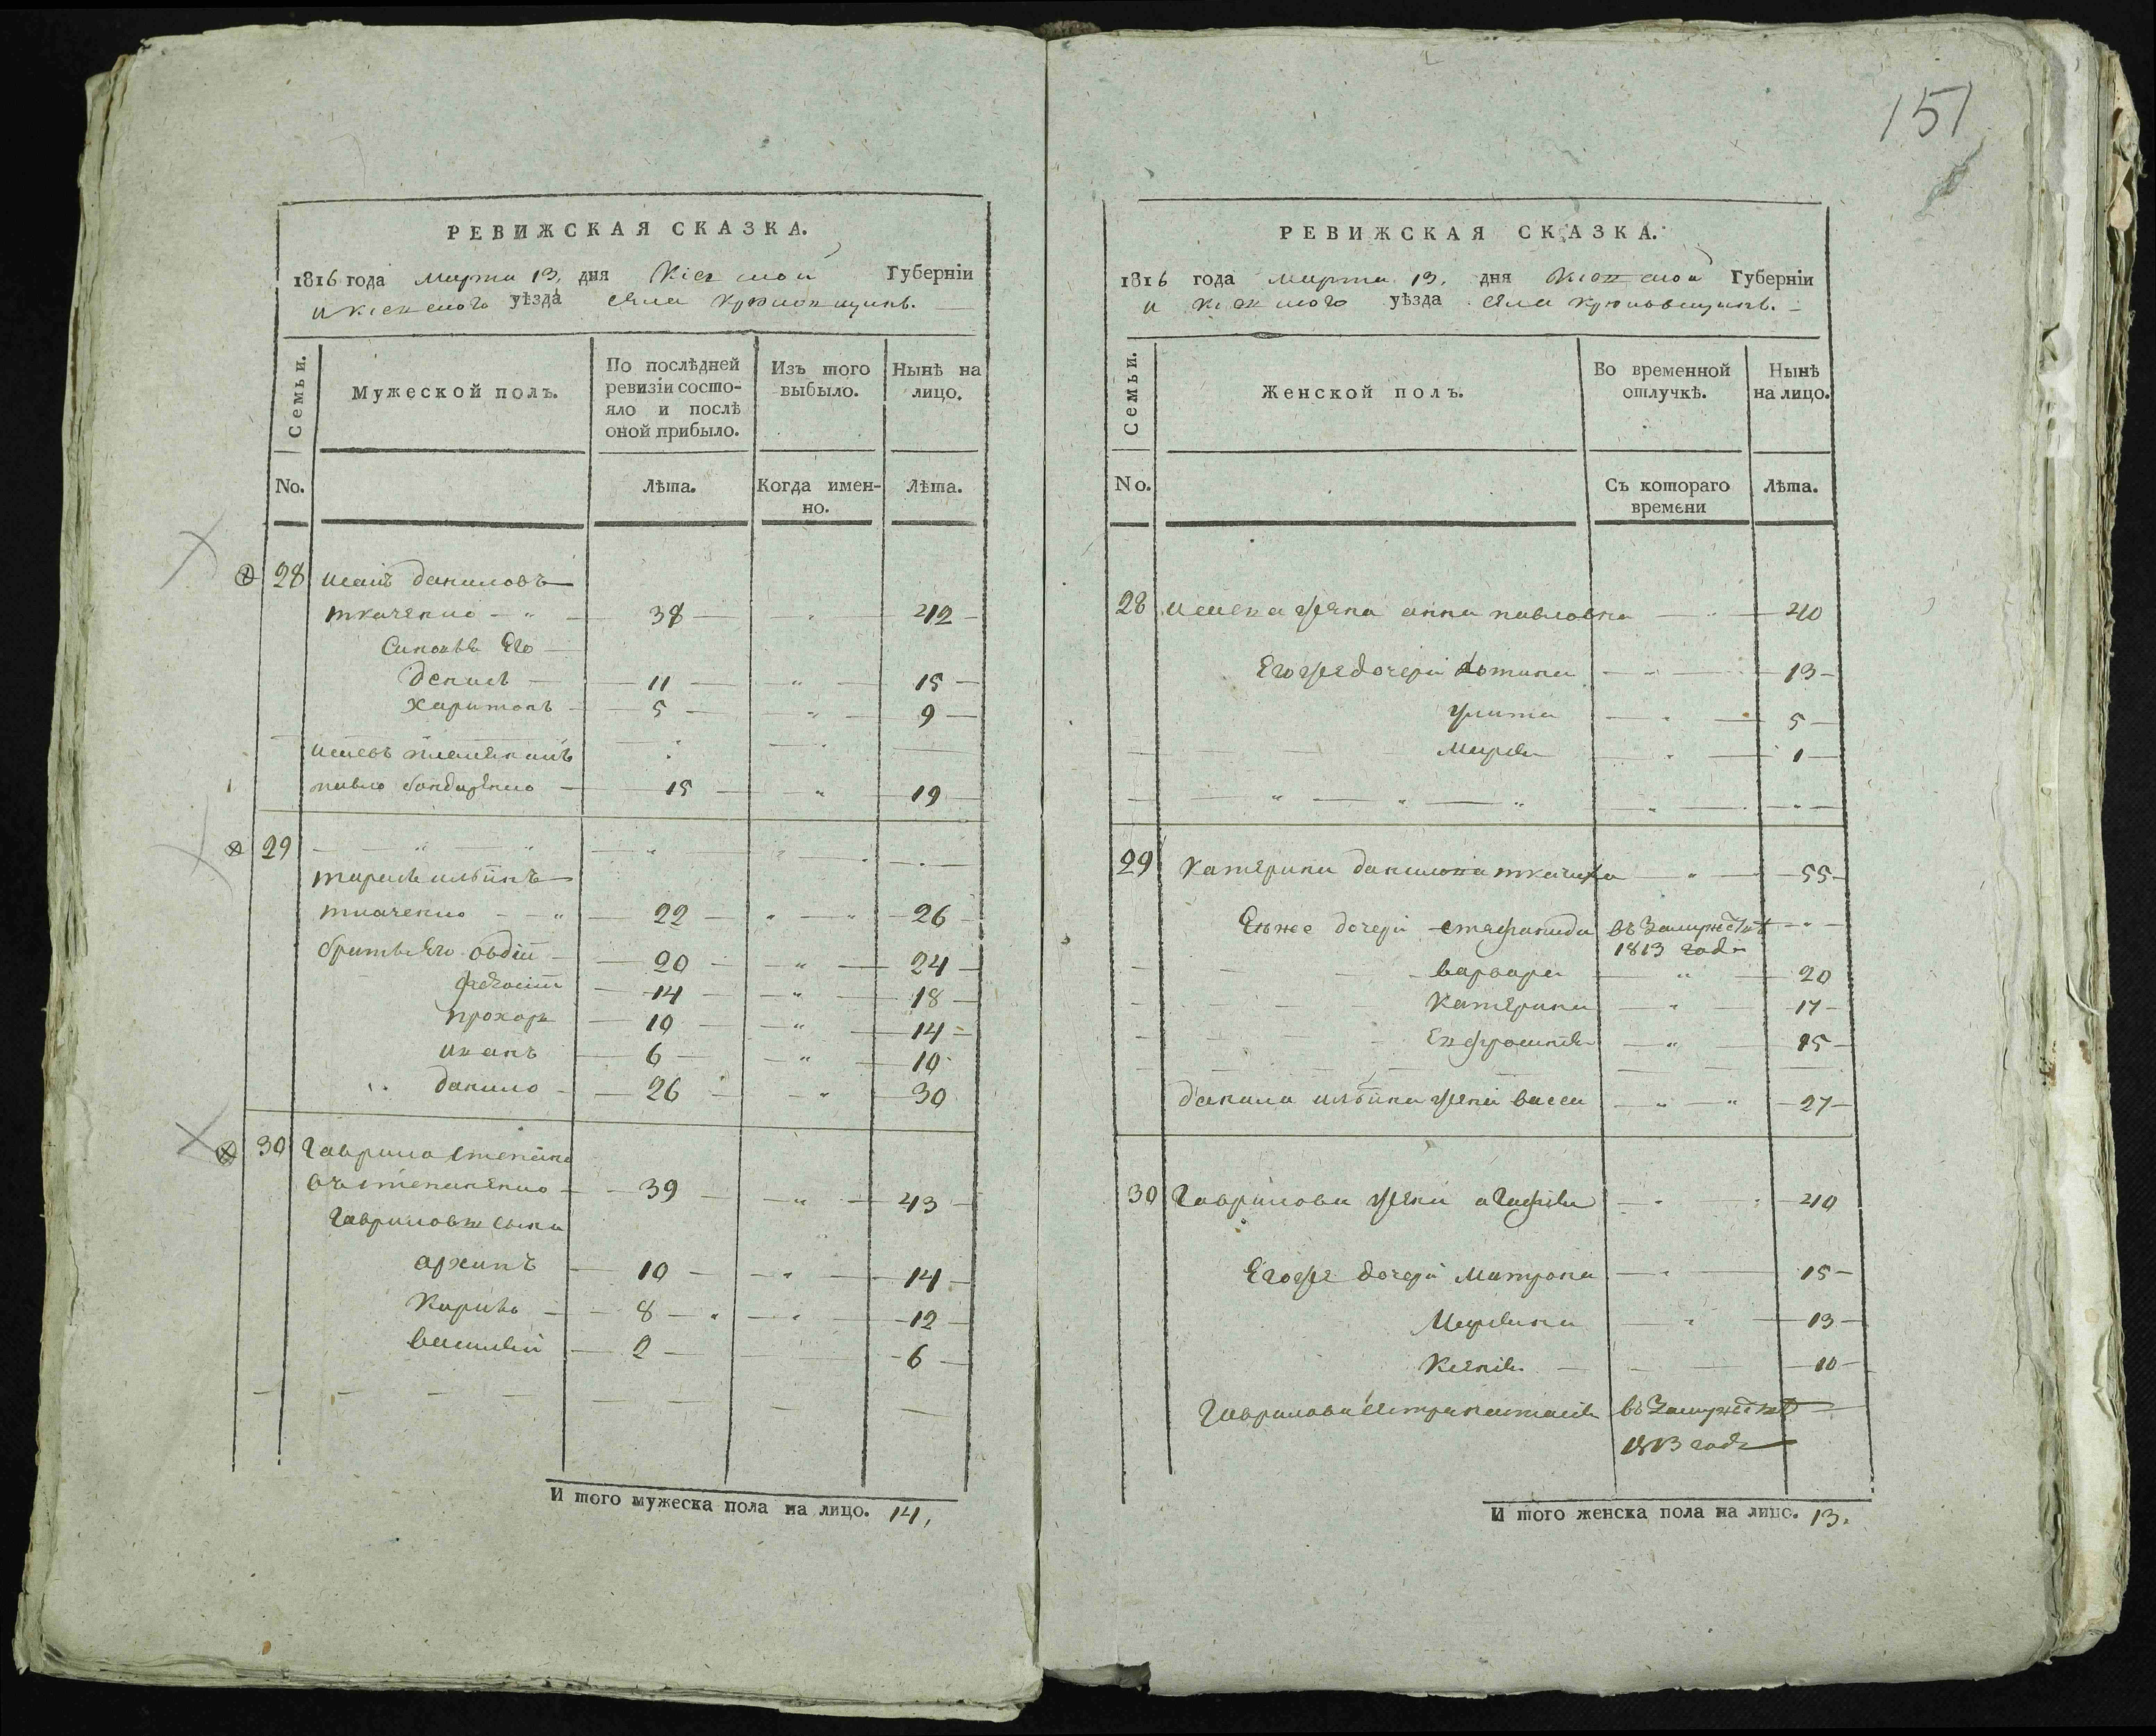 РЕВИЖСКАЯ СКАЗКА.
1816 года марта 13, дня Кіевской Губерніи
и кіевского уѣзда села Крюковщинѣ.
Семьи.
Мужеской полъ.
По послѣдней ревизіи состояло и послѣ оной прибыло.
Изъ того выбыло.
Нынѣ на лицо.
No.
Лѣта.
Когда именно.
Лѣта.
28 исай даниловъ
ткаченко 38 42
Синовья Его
денисъ 11 15
харитонъ 5 9
исаевъ племянникъ
павло бондаренко 15 19
29
тарасъ ильинъ
ткаченко 22 26
братья Его овдій 20 24
14 18
прохоръ 10 14
иванъ 6 10
данило 26 30
30 Гаврило степано
въ степаненко 39 43
Гавриловы сыны
архипъ 10 14
8 12
василий 2 6
И того мужеска пола на лицо. 14,
151
РЕВИЖСКАЯ СКАЗКА.
1816 года марта 13. дня Кіевской Губерніи
и Кіевского уѣзда села крюковщинѣ.
Семьи.
Женской полъ.
Во временной отлучкѣ.
Нынѣ на лицо.
No.
Съ котораго времени
Лѣта.
28 исаева жена анна павловна 40
Егоже дочери 13
улита 5
марья 1
29 Катерина данилова ткачиха 55
Еѣже дочери стефанида въ Замужествѣ
1813 года
варвара 20
Катерина 17
Евфросинья 15
данила ильина жена васса 27
30 Гаврилова жена агафия 40
Егоже дочери Матрона 15
Марьяна 13
Ксения 10
Гаврилова сестра настасья въ Замужествѣ
1813 года
И того женска пола на лицо. 13.